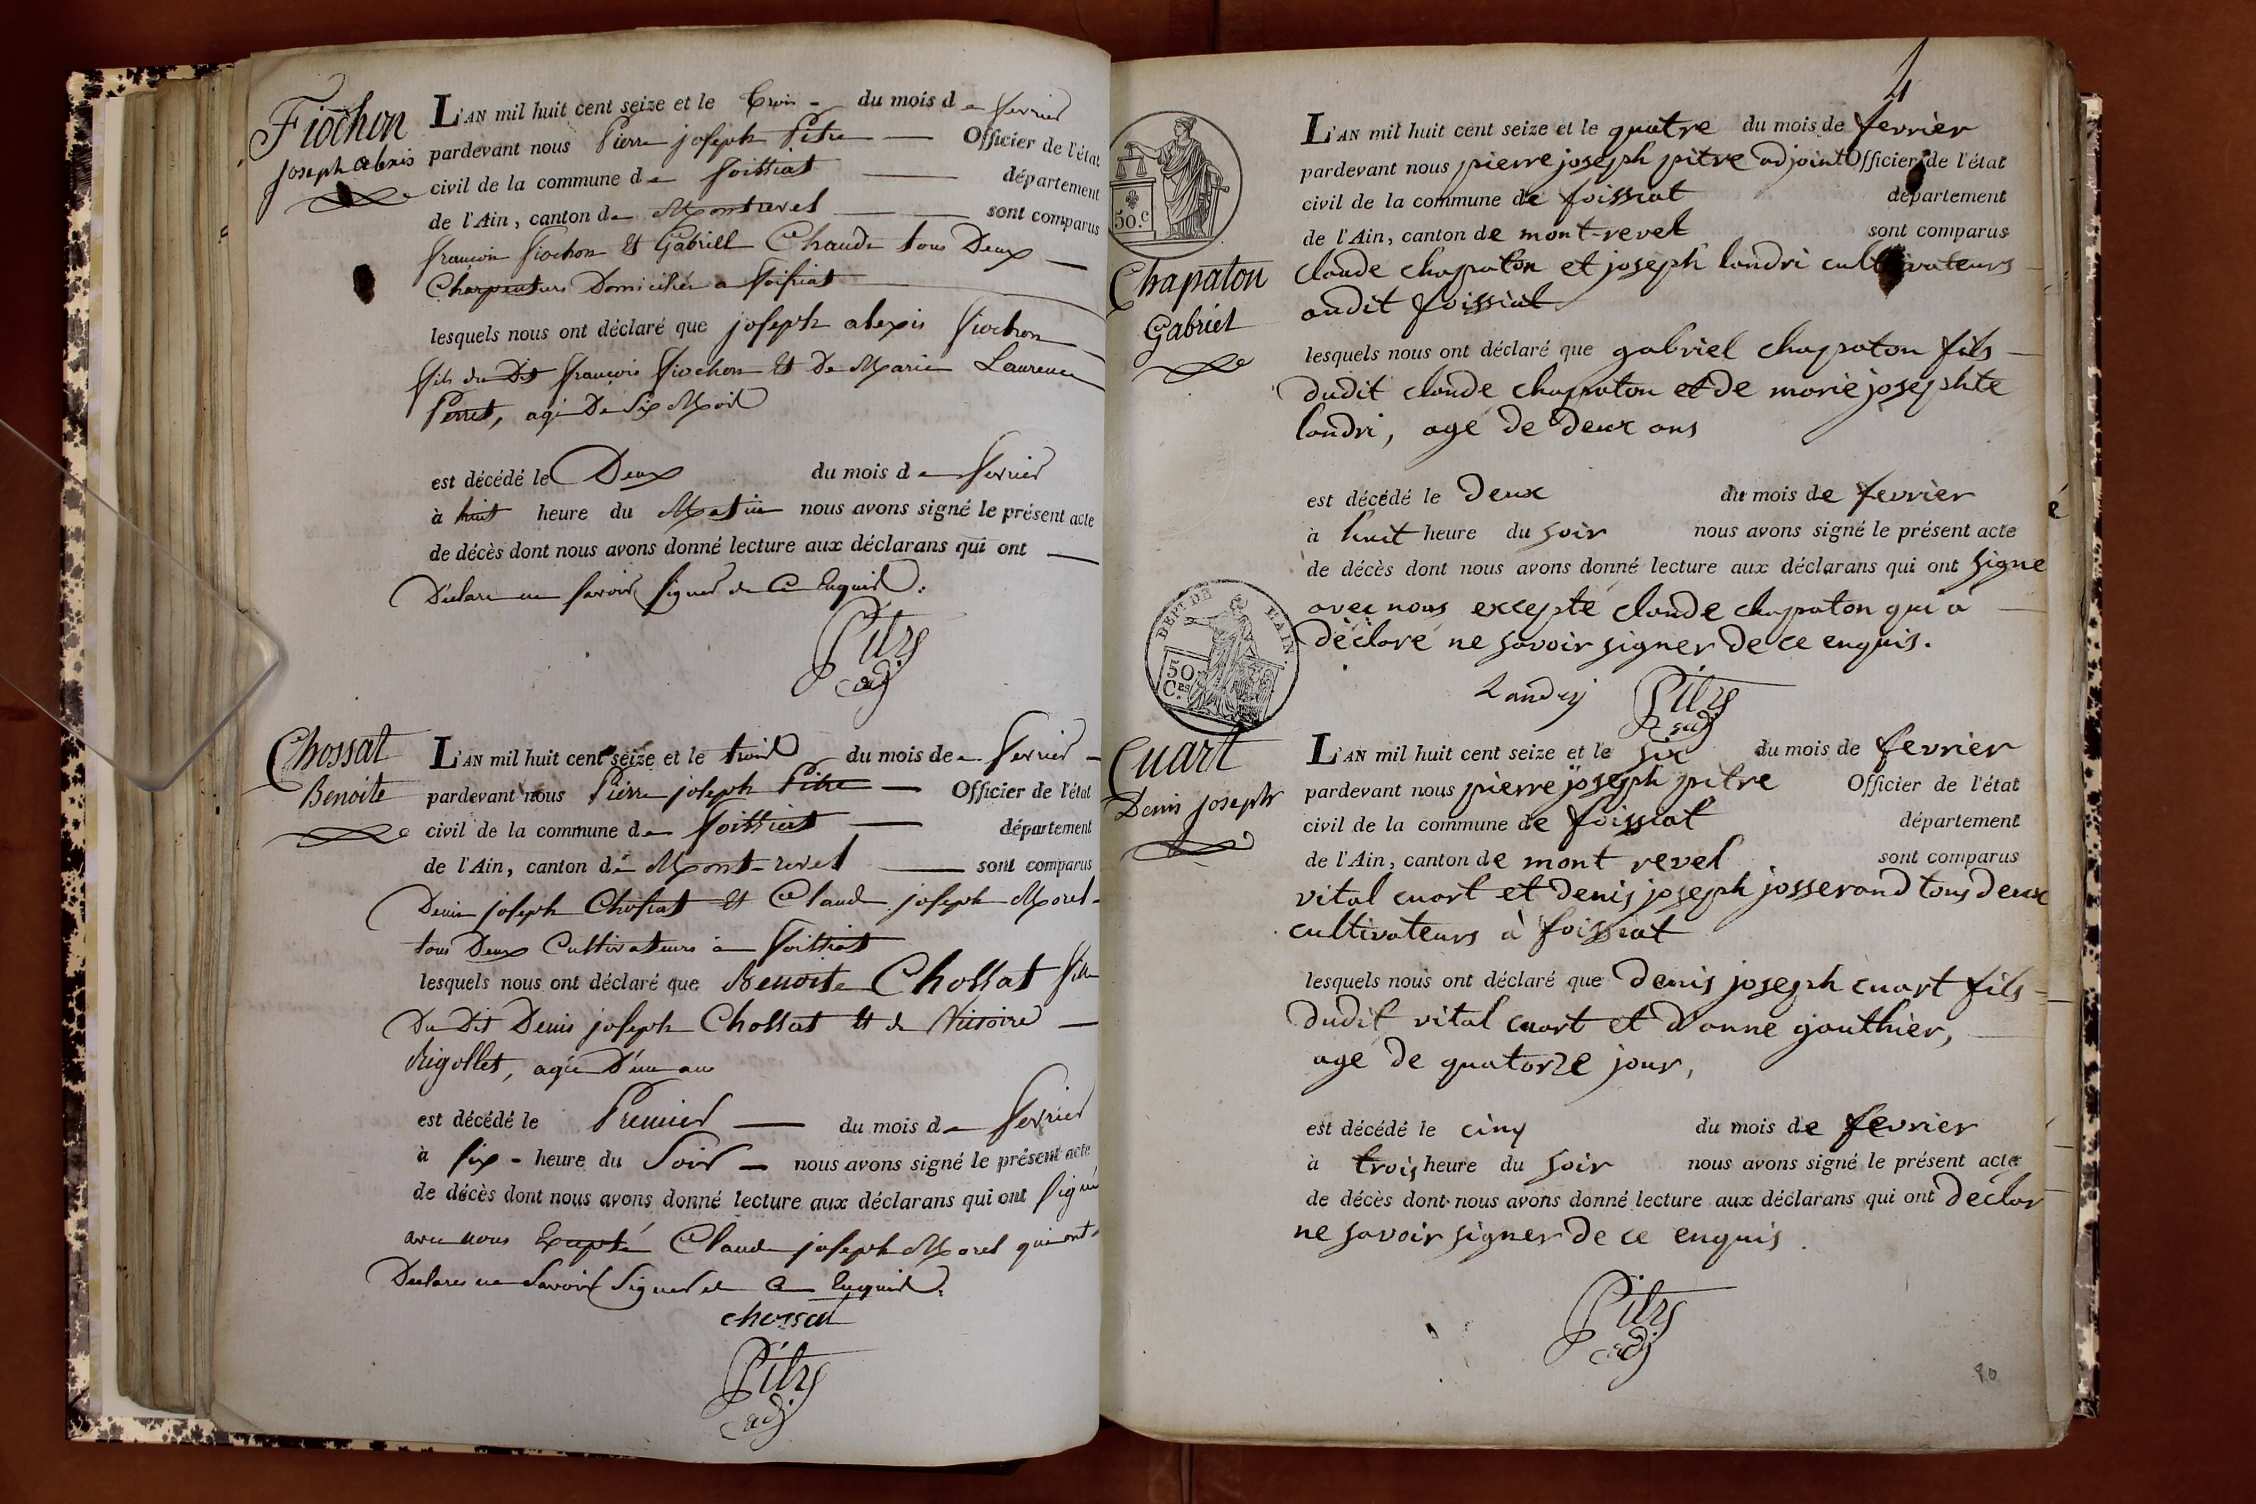 Fiochon
joseph alexis
L'AN mil huit cent seize et le trois du mois de fevrier
pardevant nous Pierre joseph Pitre Officier de l'état
civil de la commune de foissiat département
de l'Ain, canton de Montrevel sont comparus
françois fiochon et Gabriell Chaude tous Deux
Charpentiers Domiciliés a foissiat
lesquels nous ont déclaré que joseph alexis fiochon
fils du Dit françois fiochon et De Marie Laurence
Perret, agé De Six Mois
est décédé le Deux du mois de fevrier
à huit heure du Matin nous avons signé le présent acte
de décès dont nous avons donné lecture aux déclarans qui ont
Déclaré ne savoir signer de ce Enquis.
Pitre
adj
Chossat
Benoite
L'AN mil huit cent seize et le trois du mois de fevrier
pardevant nous Pierre joseph Pitre Officier de l'état
civil de la commune de foissiat département
de l'Ain, canton de Mont-revel sont comparus
Denis joseph Chossat et Claude joseph Morel
tous Deux Cultivateurs à foissiat
lesquels nous ont déclaré que Benoite Chossat fille
Du Dit Denis joseph Chossat et de Victoire
Rigollet, agée D'un an
est décédé le Premier du mois de fevrier
à six heure du Soir nous avons signé le présent acte
de décès dont nous avons donné lecture aux déclarans qui ont signé
avec nous Excepté Claude joseph Morel qui ont
Declaré ne Savoir Signer de ce Enquis.
chossat
Pitre
adj
4
50.c
Chapaton
Gabriel
L'AN mil huit cent seize et le quatre du mois de fevrier
pardevant nous pierre joseph pitre adjoint Officier de l'état
civil de la commune de foissiat département
de l'Ain, canton de mont-revel sont comparus
claude chapaton et joseph landri cultivateurs
audit foissiat
lesquels nous ont déclaré que gabriel chapaton fils
dudit claude chapaton et de marie josephte
landri, age de deux ans
est décédé le deux du mois de fevrier
à huit heure du soir nous avons signé le présent acte
de décès dont nous avons donné lecture aux déclarans qui ont signe
avec nous excepté claude chapaton qui a
déclaré ne savoir signer de ce enquis.
DEPT DE L'AIN.
50 Ces
Landry Pitre
adj
Cuart
Denis joseph
L'AN mil huit cent seize et le six du mois de fevrier
pardevant nous pierre joseph pitre Officier de l'état
civil de la commune de foissiat département
de l'Ain, canton de mont revel sont comparus
vital cuart et denis joseph josserand tous deux
cultivateurs à foissiat
lesquels nous ont déclaré que denis joseph cuart fils
dudit vital cuart et d'anne gauthier,
age de quatorze jour,
est décédé le cinq du mois de fevrier
à trois heure du soir nous avons signé le présent acte
de décès dont nous avons donné lecture aux déclarans qui ont déclar
ne savoir signer de ce enquis.
Pitre
adj
80